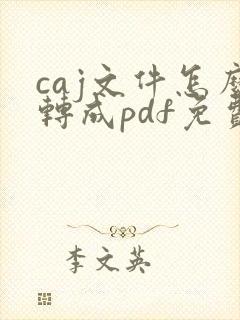 caj文件怎麼
轉成pdf免費
李文英